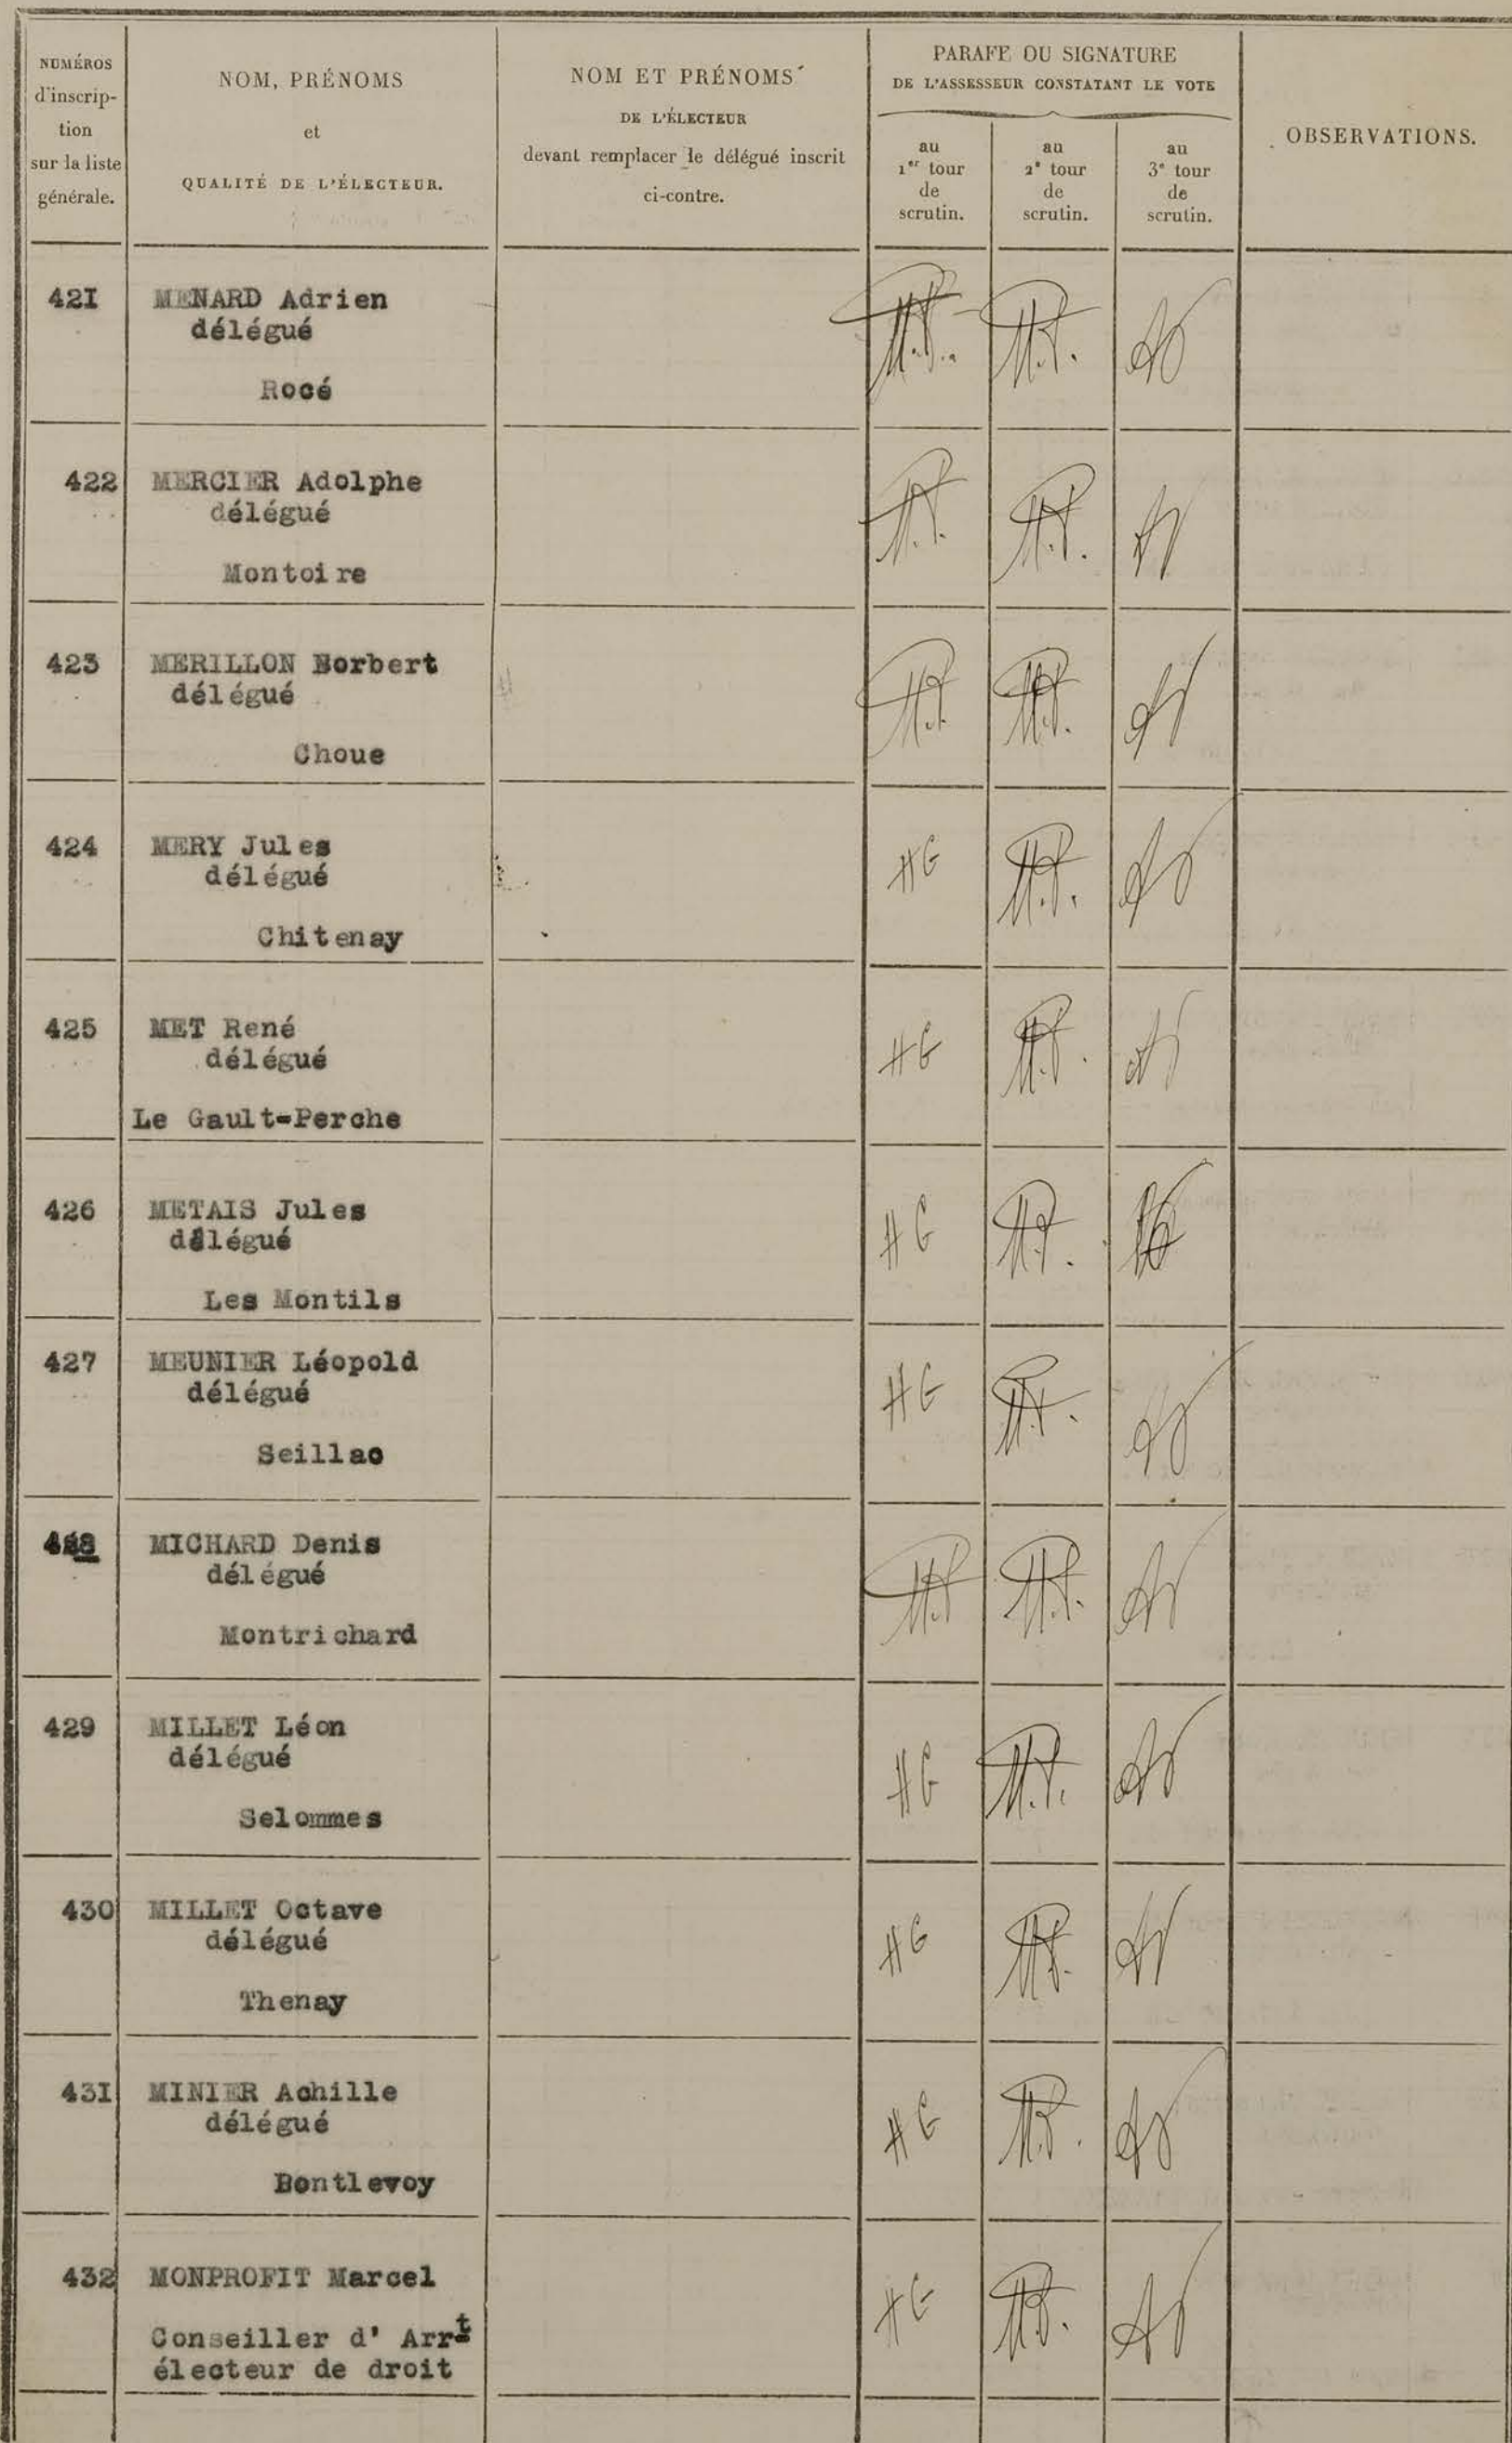 NUMÉROS
d'inscrip-
tion
sur la liste
générale.
NOM, PRÉNOMS
et
QUALITÉ DE L'ÉLECTEUR.
NOM ET PRÉNOMS
DE L'ÉLECTEUR
devant remplacer le délégué inscrit
ci-contre.
PARAFE OU SIGNATURE
DE L'ASSESSEUR CONSTATANT LE VOTE
au
1er tour
de
scrutin.
au
2e tour
de
scrutin.
au
3e tour
de
scrutin.
OBSERVATIONS.
42I MENARD Adrien
délégué
Rocé
422 MERCIER Adolphe
délégué
Montoire
423 MERILLON Norbert
délégué
Choue
424 MERY Jules HG
délégué
Chitenay
425 MET René HG
délégué
Le Gault-Perche
426 METAIS Jules HG
délégué
Les Montils
427 MEUNIER Léopold HG
délégué
Seillac
428 MICHARD Denis
délégué
Montrichard
429 MILLET Léon HG
délégué
Selommes
430 MILLET Octave HG
délégué
Thenay
43I MINIER Achille HG
délégué
Pontlevoy
432 MONPROFIT Marcel HG
Conseiller d' Arrt
électeur de droit